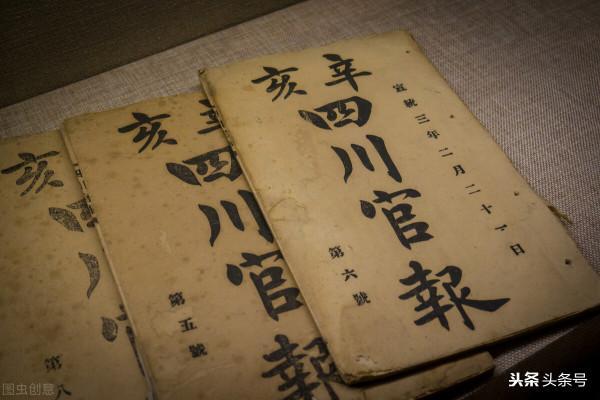 宣統三年二月二十一日
辛亥
四川官報
第六號
辛亥
四川官報
第五號
亥
第八
图虫创意
头条 头条号